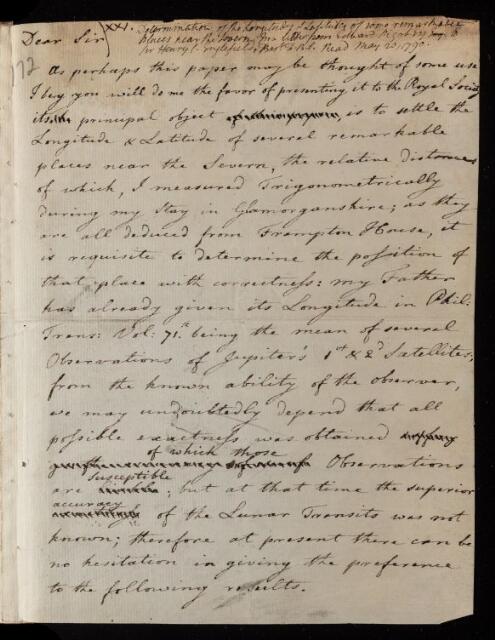 XXI. Determination of the Longitude & Latitude of some remarkable
Places near the Severn. In a letter from Edward Pigott Esq. to
Sir Henry C. Englefield, Bart. F.R.S. Read May 20, 1790.
Dear Sir
72
as perhaps this paper may be thought of some use
I beg you will do me the favor of presenting it to the Royal Society
its principal object is to settle the
Longitude & Latitude of several remarkable
places near the Severn, the relative distances
of which, I measured Trigonometrically
during my Stay in Glamorganshire; as they
are all deduced from Frampton House, it
is requisite to determine the position of
that place with correctness: my Father
has already given its Longitude in Phil:
Trans: Vol: 71. being the mean of several
Observations of Jupiter's 1st & 2d Satellites;
from the known ability of the observer,
we may undoubtedly depend that all
possible exactness was obtained
of which those
Observations
Susceptible
are ; but at that time the superior
accuracy
of the Lunar Transits was not
known; therefore at present there can be
no hesitation in giving the preference
to the following results.